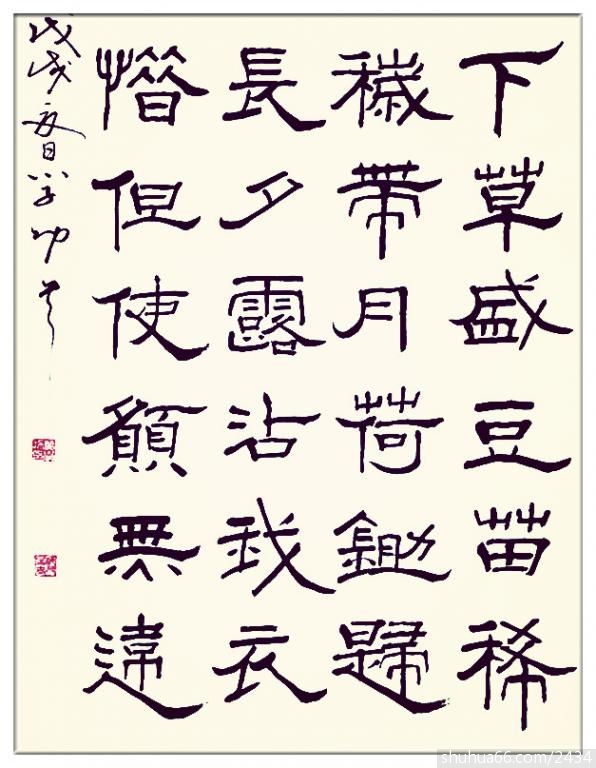 下草盛豆苗稀
穢帶月荷鋤歸
長夕露沾我衣
惜但使願無違
戊戌
shuhua66.com/2434